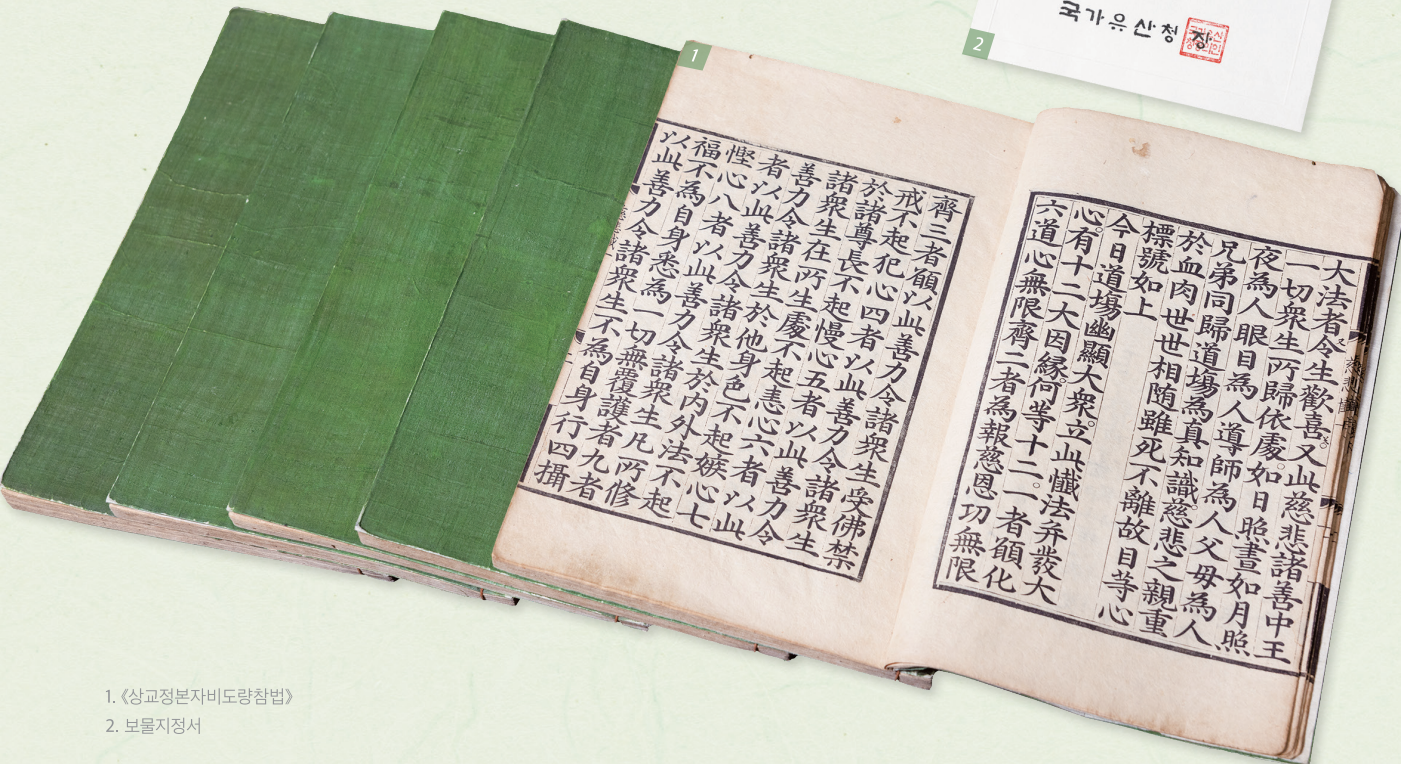 국가유산청장
2
1
大法者令生歡喜。又此慈悲諸善中王
一切衆生所歸依處。如日照晝如月照
夜為人眼目為人導師為人父母為人
兄弟同歸道塲為真知識。慈悲之親重
於血肉世世相随雖死不離故目等心
標號如上
今日道塲幽顯大衆。立此懺法并發大
心。有十二大因緣。何等十二。一者願化
六道心無限齊二者為報慈恩功無限
齊三者願以此善力令諸衆生受佛禁
戒不起犯心四者以此善力令諸衆生
於諸尊長不起慢心五者以此善力令
諸衆生在所生處不起恚心六者以此
善力令諸衆生於他身色不起嫉心七
者以此善力令諸衆生於內外法不起
慳心八者以此善力令諸衆生凡所修
福不為自身悉為一切無覆護者九者
以此善力令諸衆生不為自身行四攝
1. 《상교정본자비도량참법》
2. 보물지정서